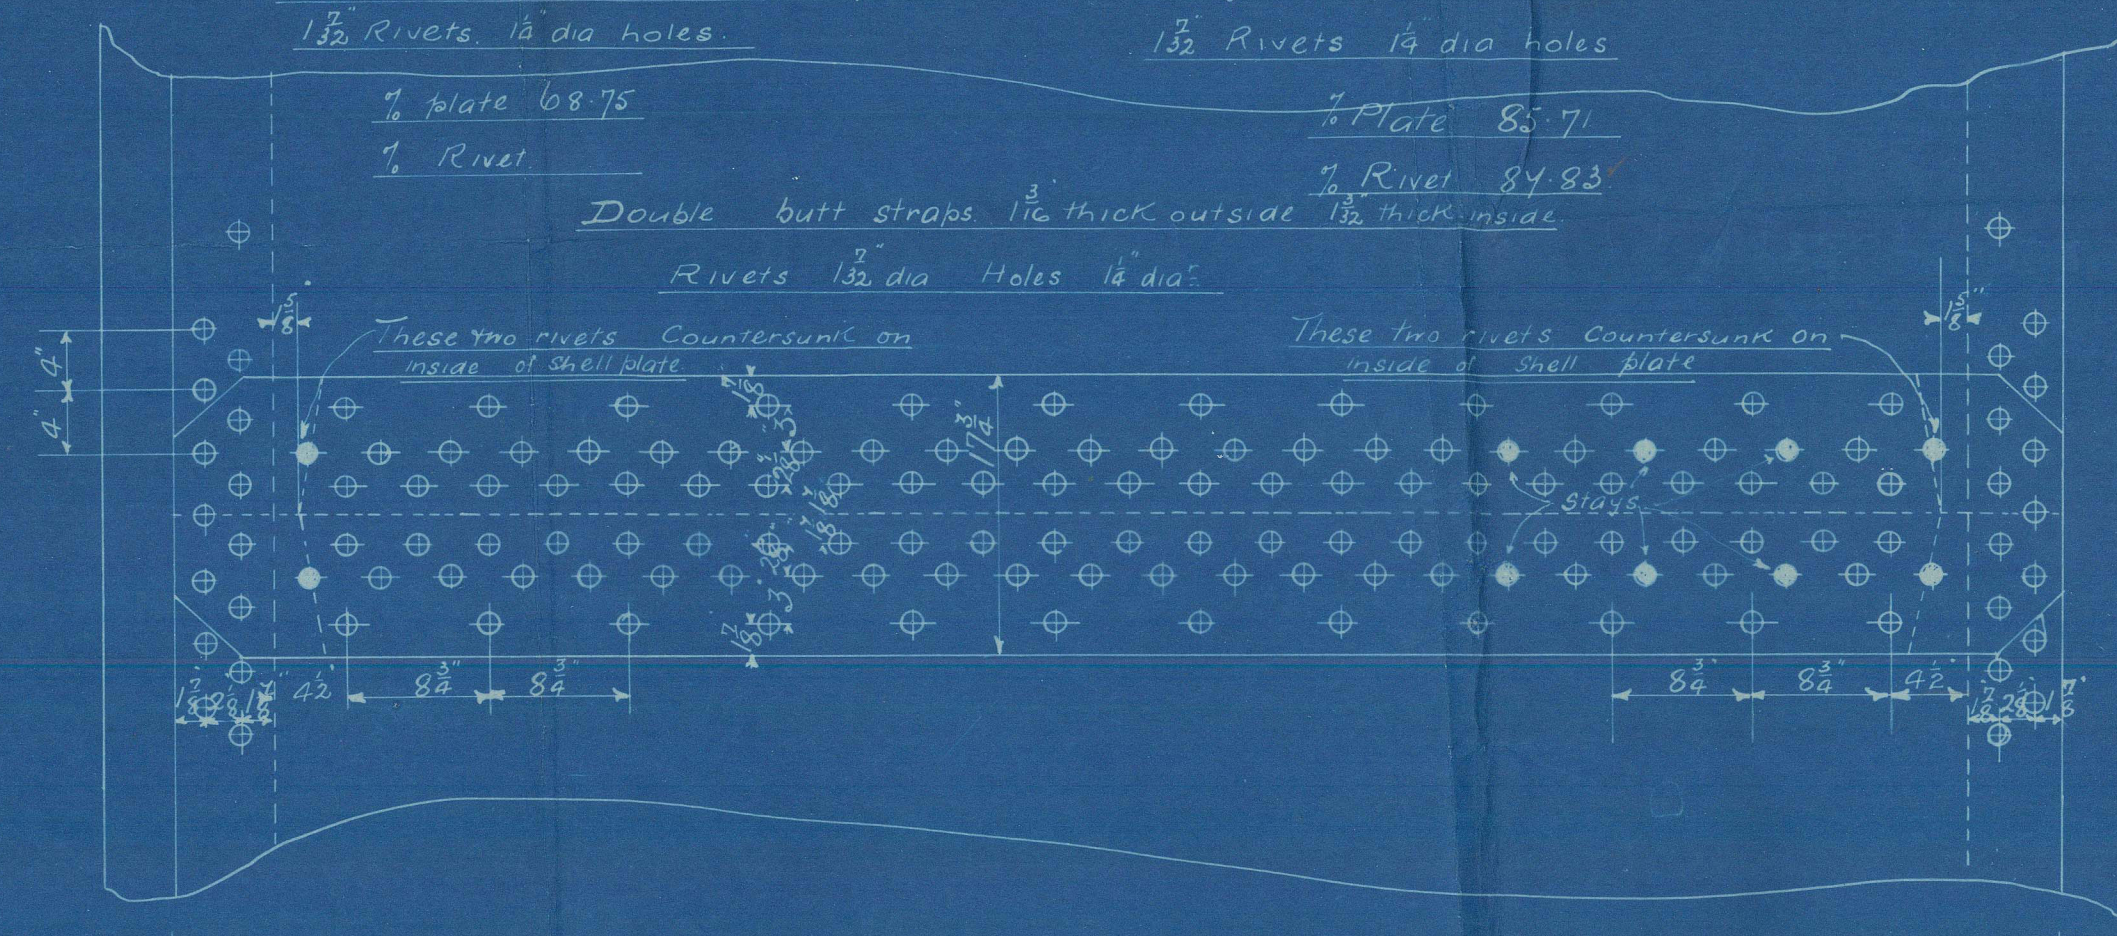 1 7/32" Rivets. 1 1/4" dia holes.
1 7/32" Rivets 1 1/4" dia holes
% plate 68.75
% Plate 85.71
% Rivet
% Rivet 84.83
Double butt straps. 1 3/16" thick outside 1 3/32" thick inside.
Rivets 1 7/32" dia Holes 1 1/4" diar
1 5/8"
1 5/8"
These two rivets Countersunk on
inside of shell plate.
These two rivets Countersunk on
inside of Shell plate
4"
4"
1 7/8"
3"
2 1/8"
1 7/8
1 7/8
2 1/8"
3"
1 7/8"
17 3/4"
Stays
1 7/8" 2 1/8" 1 7/8"
4 1/2"
8 3/4"
8 3/4"
8 3/4"
8 3/4"
4 1/2"
1 7/8" 2 1/8" 1 7/8"